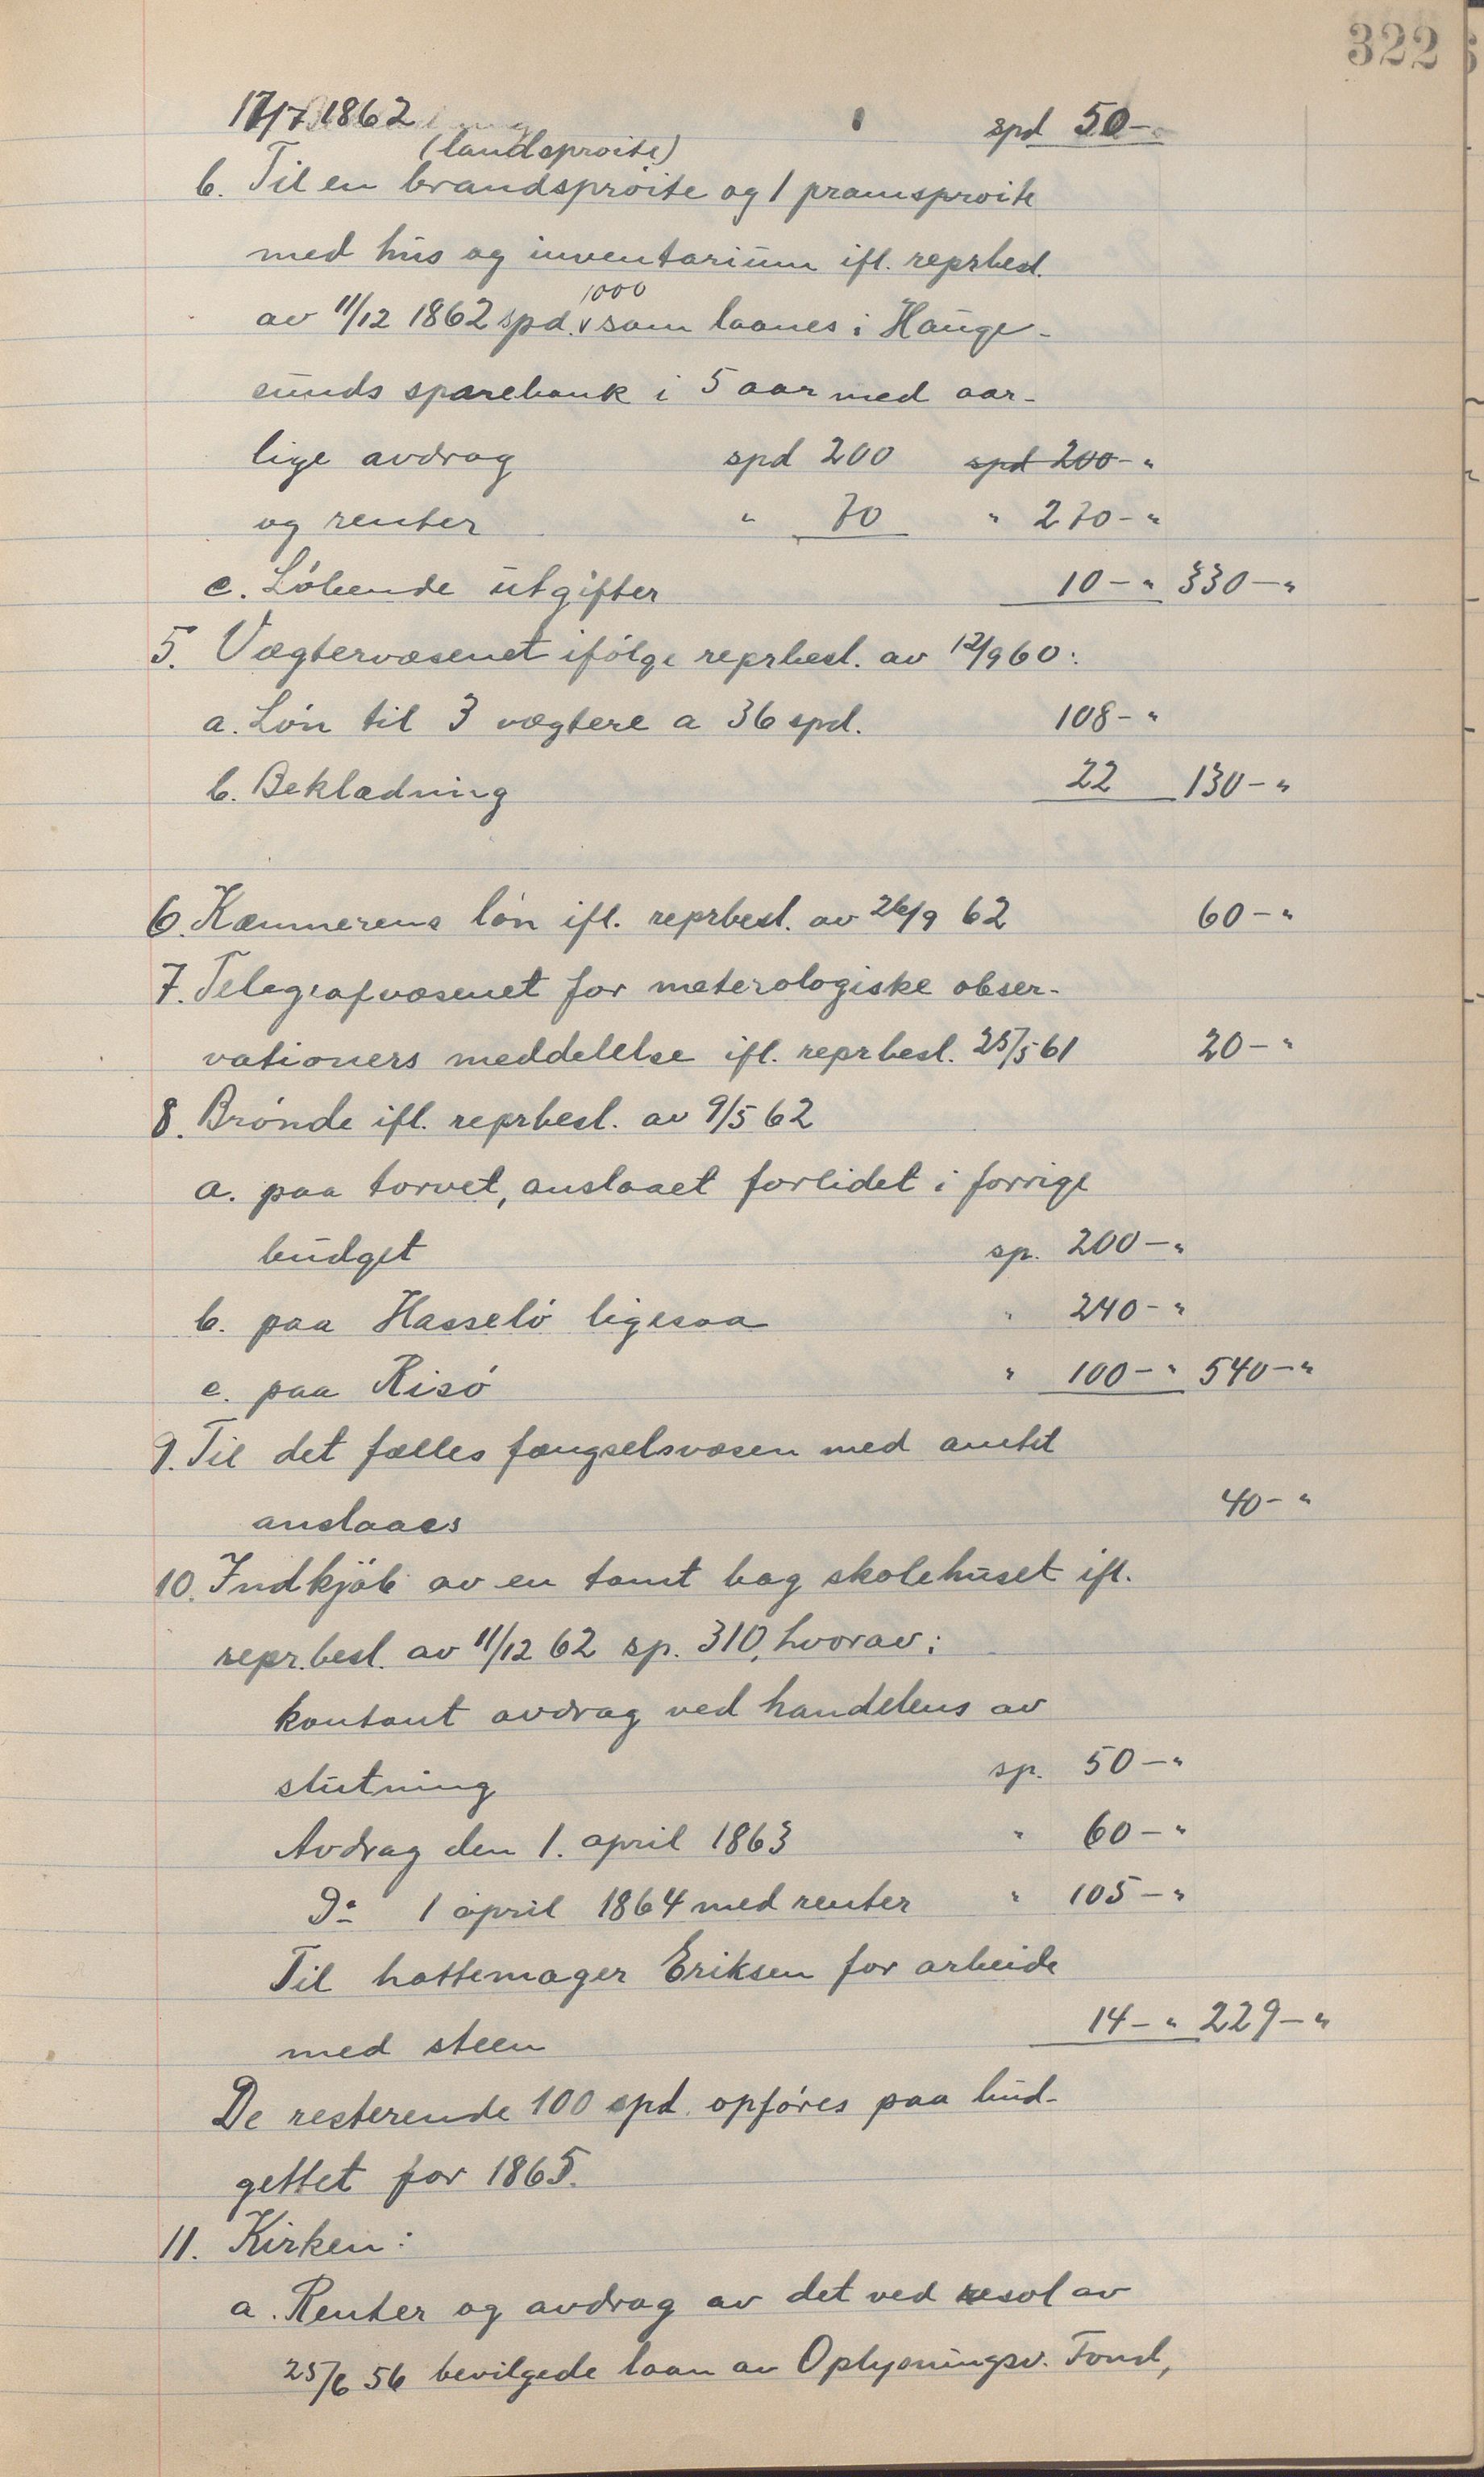 322
17/7 1862 spd 50-
(landsprøite)
b. Til en brandsprøite og 1 pramsprøite
med hus og inventarium ifl. reprbesl.
1000
av 11/12 1862 spd. v som laanes i Hauge-
sunds sparebank i 5 aar med aar-
lige avdrag spd 200 spd 200-"
og renter " 70 " 270-"
c. Løbende utgifter 10-" 330-"
5. Vægtervæsenet ifølge reprbesl. av 12/9 60:
a. Løn til 3 vægtere a 36 spd. 108-"
b. Beklædning 22 130-"
6. Kæmnerens løn ifl. reprbesl. av 26/9 62 60-"
7. Telegrafvæsenet for meterologiske obser-
vationers meddelelse ifl. reprbesl. 25/5 61 20-"
8. Brønde ifl. reprbesl. av 9/5 62
a. paa torvet, anslaaet forlidet i forrige
budget sp. 200-"
b. paa Hasselø ligesaa " 240-"
c. paa Risø " 100-" 540-"
9. Til det fælles fængselsvæsen med amtet
anslaaes 40-"
10. Indkjøb av en tomt bag skolehuset ifl.
repr.besl. av 11/12 62 sp. 310, hvorav:
kontant avdrag ved handelens av
slutning sp. 50-"
Avdrag den 1. april 1863 " 60-"
Do 1 april 1864 med renter " 105-"
Til hattemager Eriksen for arbeide
med steen 14-" 229-"
De resterende 100 spd. opføres paa bud-
gettet for 1865.
11. Kirken:
a. Renter og avdrag av det ved resol av
25/6 56 bevilgede laan av Oplysningsv. Fond,